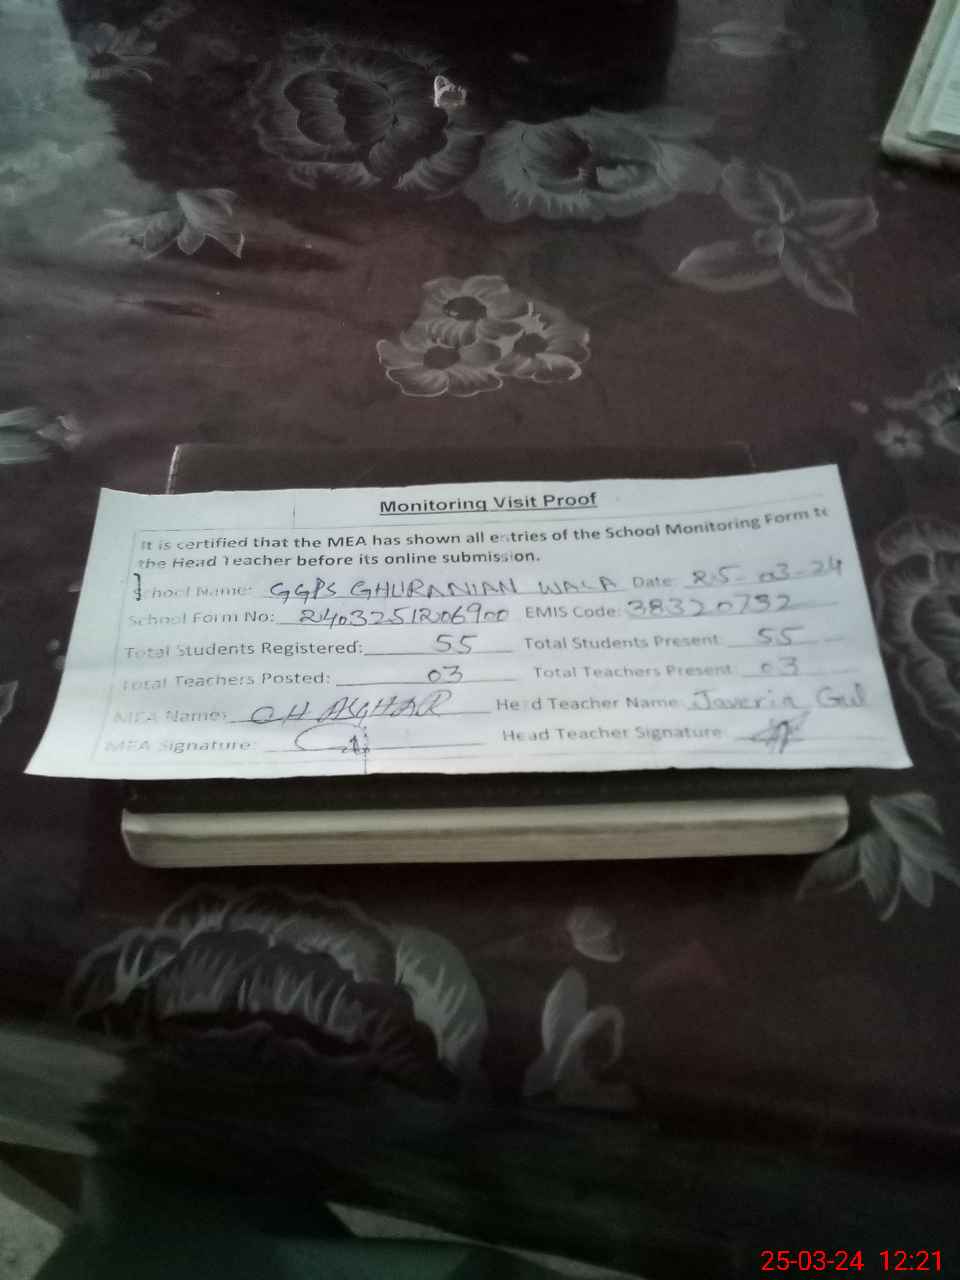 Monitoring Visit Proof
It is certified that the MEA has shown all entries of the School Monitoring Form to
the Head Teacher before its online submission.
School Name: GGPS GHURANIAN WALA Date: 25-03-24
School Form No: 2403251206900 EMIS Code: 38320792
Total Students Registered: 55 Total Students Present: 55
Total Teachers Posted: 03 Total Teachers Present: 03
MEA Name: CH ASGHAR Head Teacher Name: Javeria Gul
MEA Signature: Head Teacher Signature
25-03-24 12:21